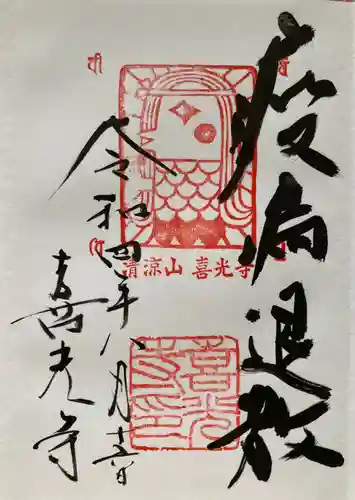 疫病退散
清涼山 喜光寺
喜光寺印
令和四年八月十六日
喜光寺